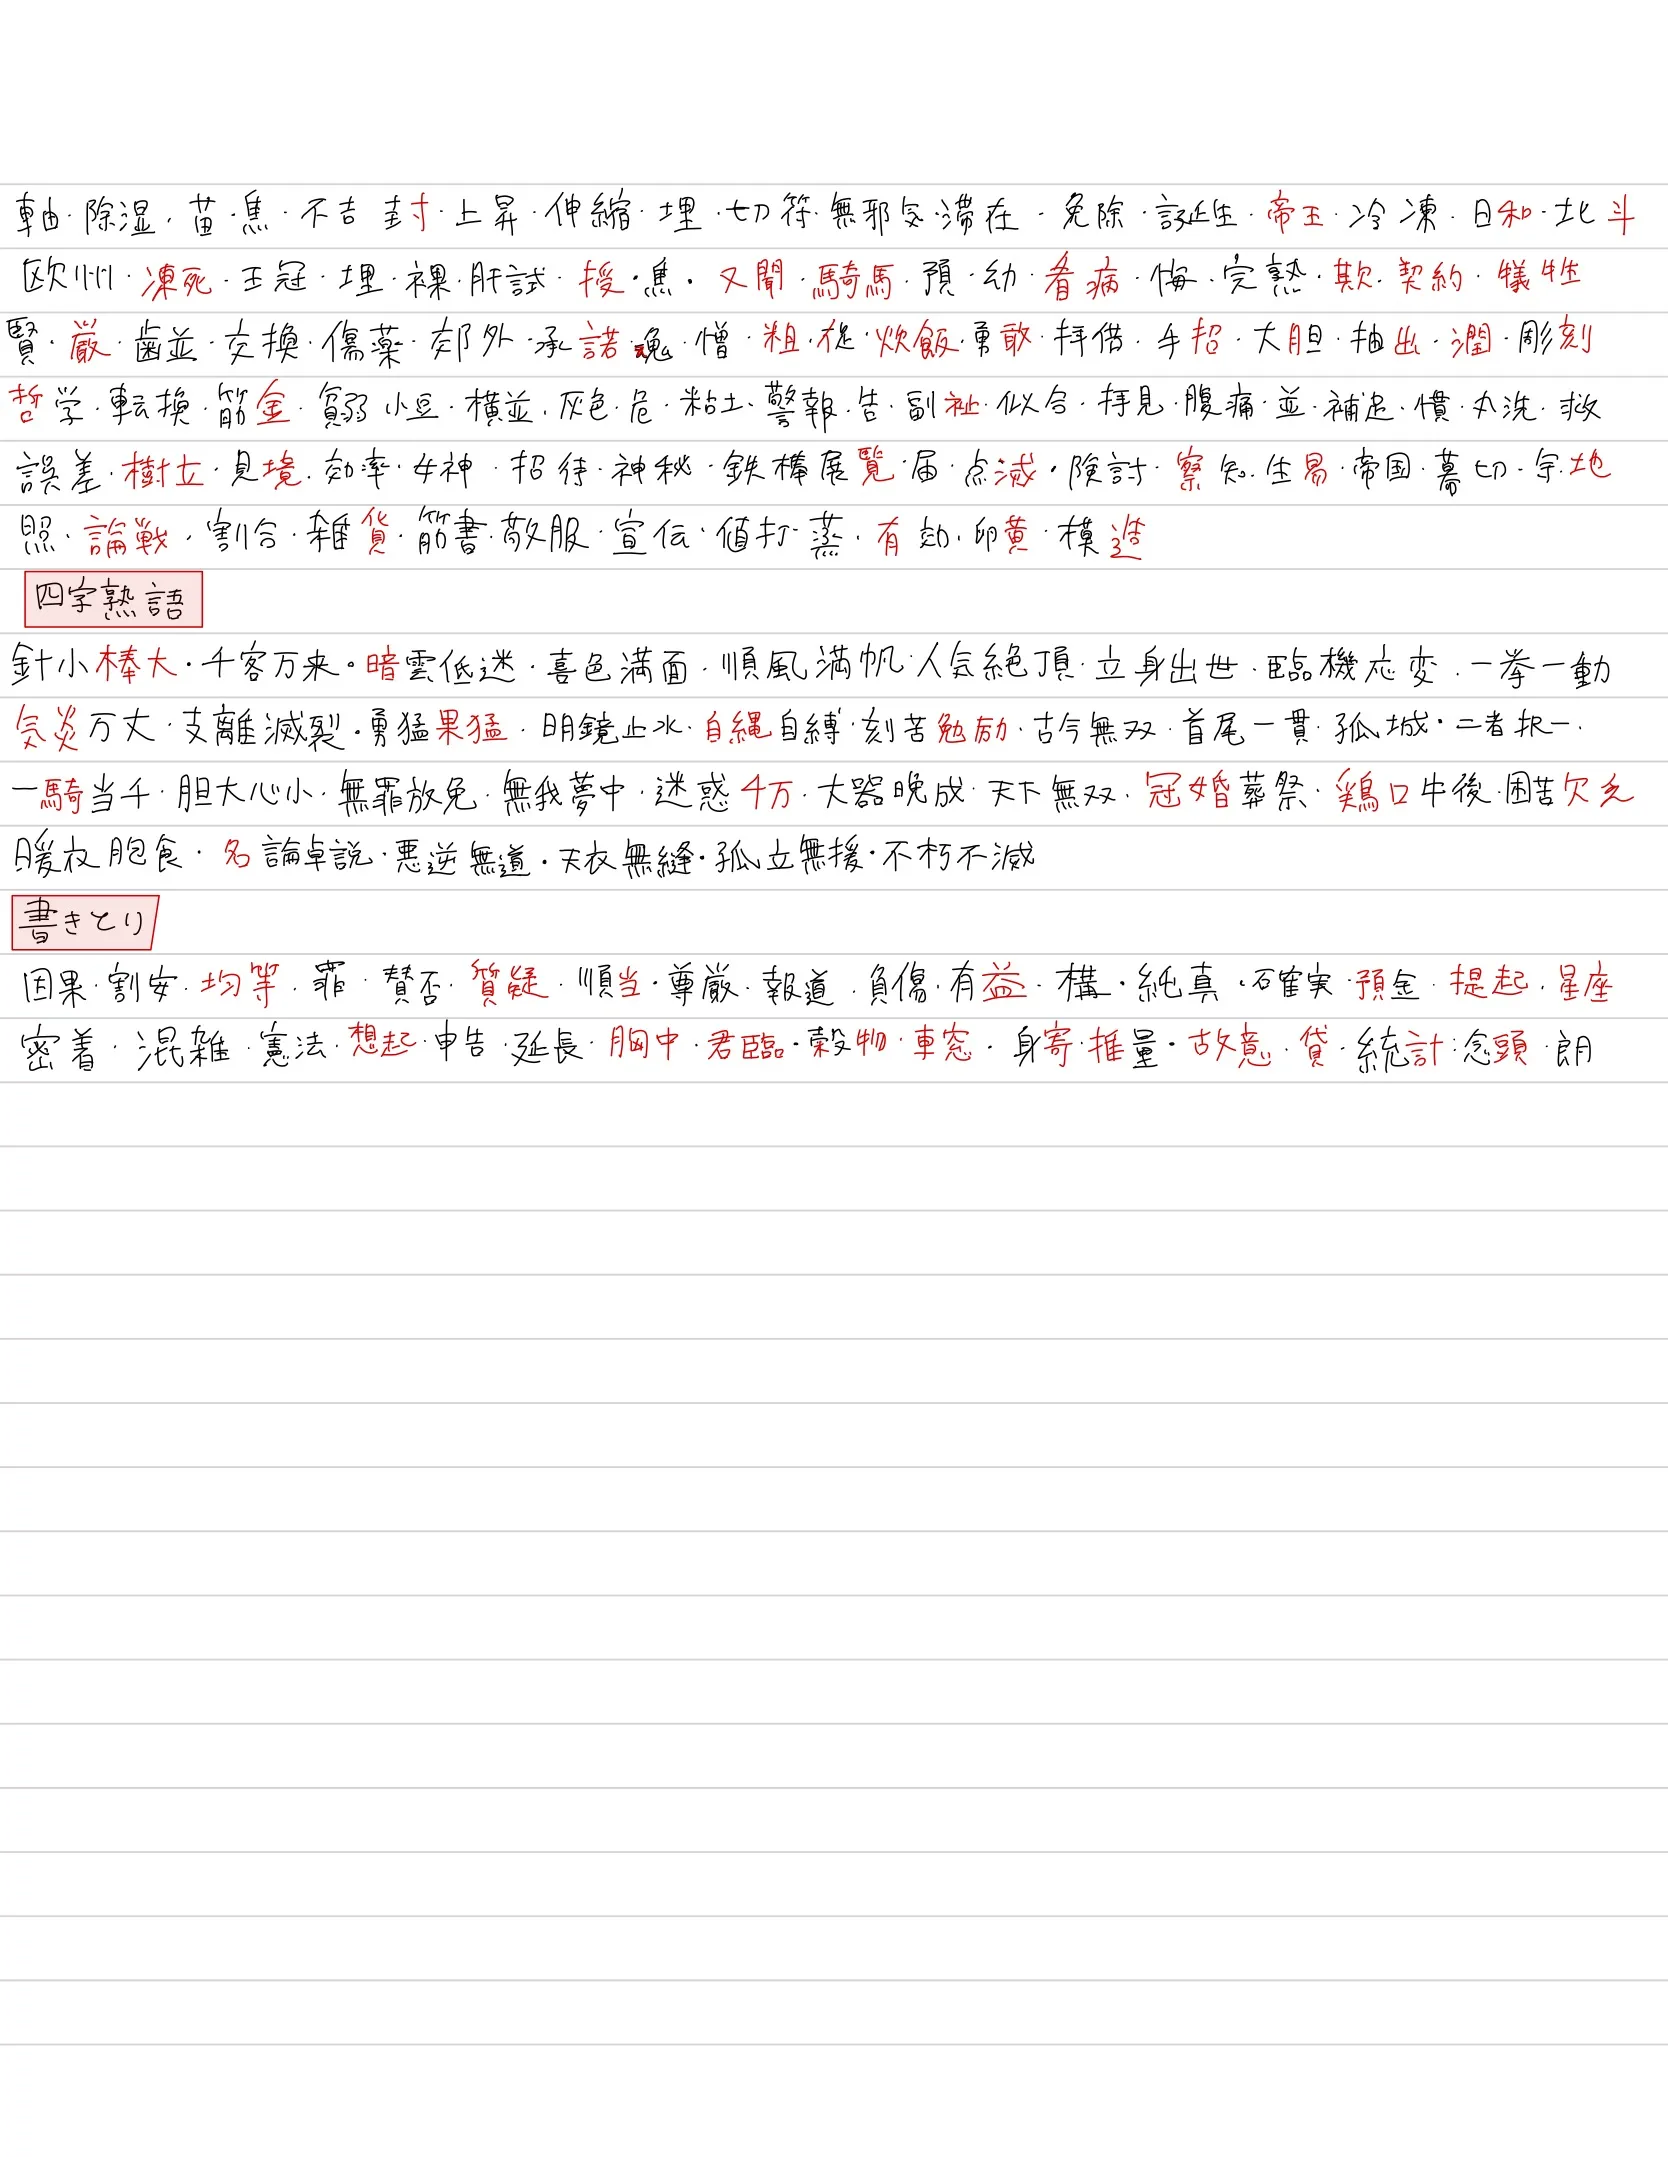 軸・除湿・苗・焦・不吉 封・上昇・伸縮・埋・切符・無邪気・滞在・免除・誕生・帝王・冷凍・日和・北斗
欧州・凍死・王冠・埋・裸・肝試・授・焦・又聞・騎馬・預・幼・看病・悔・完熟・欺・契約・犠牲
賢・厳・歯並・交換・傷薬・郊外・承諾・魂・憎・粗・従・炊飯・勇敢・拝借・手招・大胆・抽出・潤・彫刻
哲学・転換・筋金・貧弱 小豆・横並・灰色・危・粘土・警報・告・副祉・似合・拝見・腹痛・並・補足・慣・丸洗・救
誤差・樹立・見境・効率・女神・招待・神秘・鉄棒 展覧・届・点滅・険討・察知・生易・帝国・幕切・宇地
照・論戦・割合・雑貨・筋書・敬服・宣伝・値打・蒸・有効・卵黄・模造
四字熟語
針小棒大・千客万来。暗雲低迷・喜色満面・順風満帆・人気絶頂・立身出世・臨機応変・一挙一動
気炎万丈・支離滅裂・勇猛果猛・明鏡止水・自縄自縛・刻苦勉励・古今無双・首尾一貫・孤城・二者択一・
一騎当千・胆大心小・無罪放免・無我夢中・迷惑千万・大器晩成・天下無双・冠婚葬祭・鶏口牛後・困苦欠乏
暖衣胞食・名論卓説・悪逆無道・天衣無縫・孤立無援・不朽不滅
書きとり
因果・割安・均等・罪・賛否・質疑・順当・尊厳・報道・負傷・有益・構・純真・確実・預金・提起・星座
密着・混雑・憲法・想起・申告・延長・胸中・君臨・穀物・車窓・身寄・推量・故意・貸・統計・念頭・朗